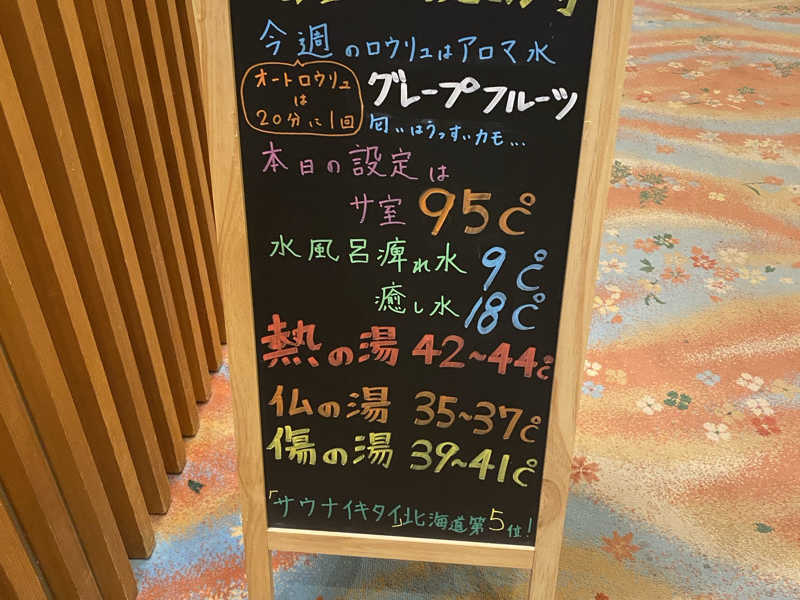 今週のロウリュはアロマ水
オートロウリュ
は
20分に1回
グレープフルーツ
匂いはうっすぃカモ...
本日の設定は
サ室 95℃
水風呂痺れ水 9℃
癒し水 18℃
熱の湯 42~44℃
仏の湯 35~37℃
傷の湯 39~41℃
「サウナイキタイ」北海道第5位!